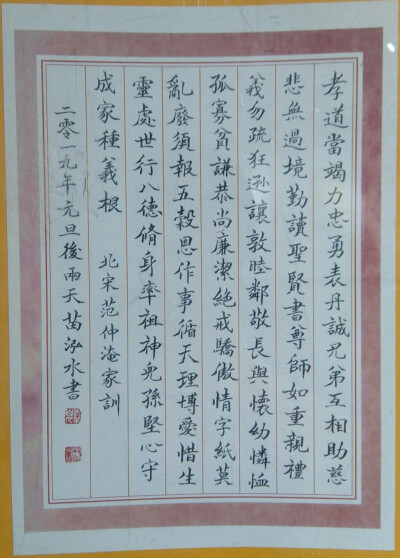 孝道當竭力忠勇表丹誠兄弟互相助慈
悲無過境勤讀聖賢書尊師如重親禮
義勿疏狂遜讓敦睦鄰敬長與懷幼憐恤
孤寡貧謙恭尚廉潔絕戒驕傲情字紙莫
亂廢須報五穀恩作事循天理博愛惜生
靈處世行八德脩身率祖神兒孫堅心守
成家種義根 北宋范仲淹家訓
二零一九年元旦後兩天苗泓水書